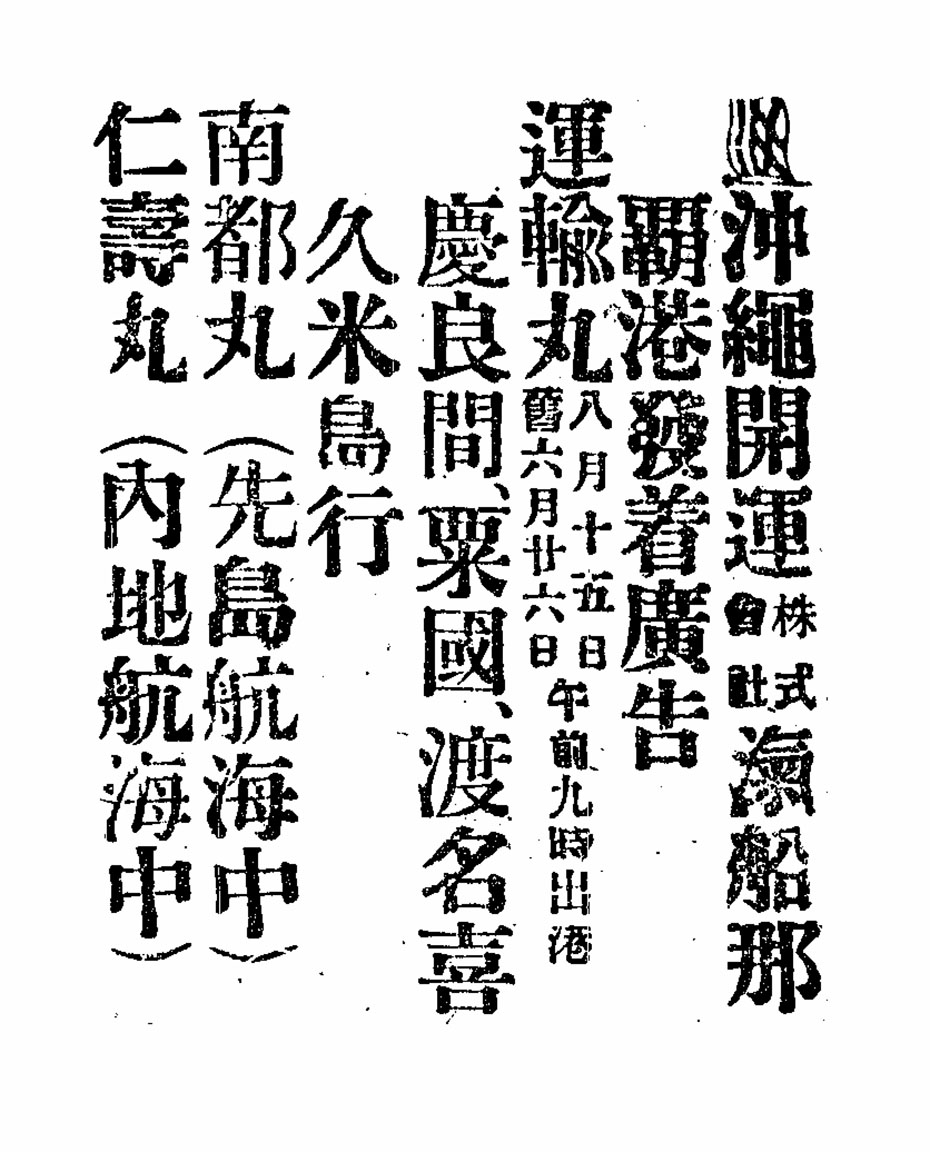 沖繩開運株式會社滊船那
覇港發着廣告
運輸丸八月十五日舊六月廿六日午前九時出港
慶良間、粟國、渡名喜
久米島行
南都丸（先島航海中）
仁壽丸（內地航海中）